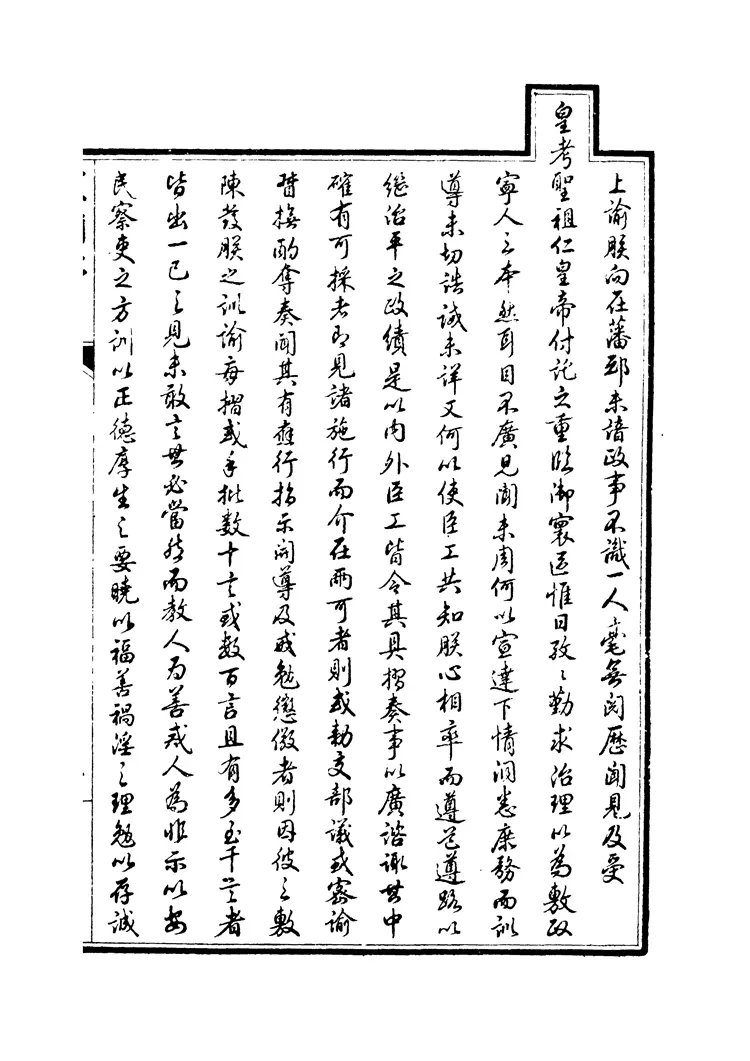 上諭朕向在藩邸未諳政事不識一人毫無閱歷聞見及受
皇考聖祖仁皇帝付託之重臨御寰區惟日孜〻勤求治理以為敷政
寧人之本然耳目不廣見聞未周何以宣達下情洞悉庶務而訓
導未切誥誡未詳又何以使臣工共知朕心相率而遵道遵路以
繼治平之政績是以內外臣工皆令其具摺奏事以廣諮諏其中
確有可採者即見諸施行而介在兩可者則或敕交部議或密諭
督撫酌奪奏聞其有應行指示開導及戒勉懲儆者則因彼之敷
陳發朕之訓諭每摺或手批数十言或数百言且有多至千言者
皆出一己之見未敢言世必當然而教人为善戒人為非示以安
民察吏之方訓以正德厚生之要曉以福善禍淫之理勉以存誠